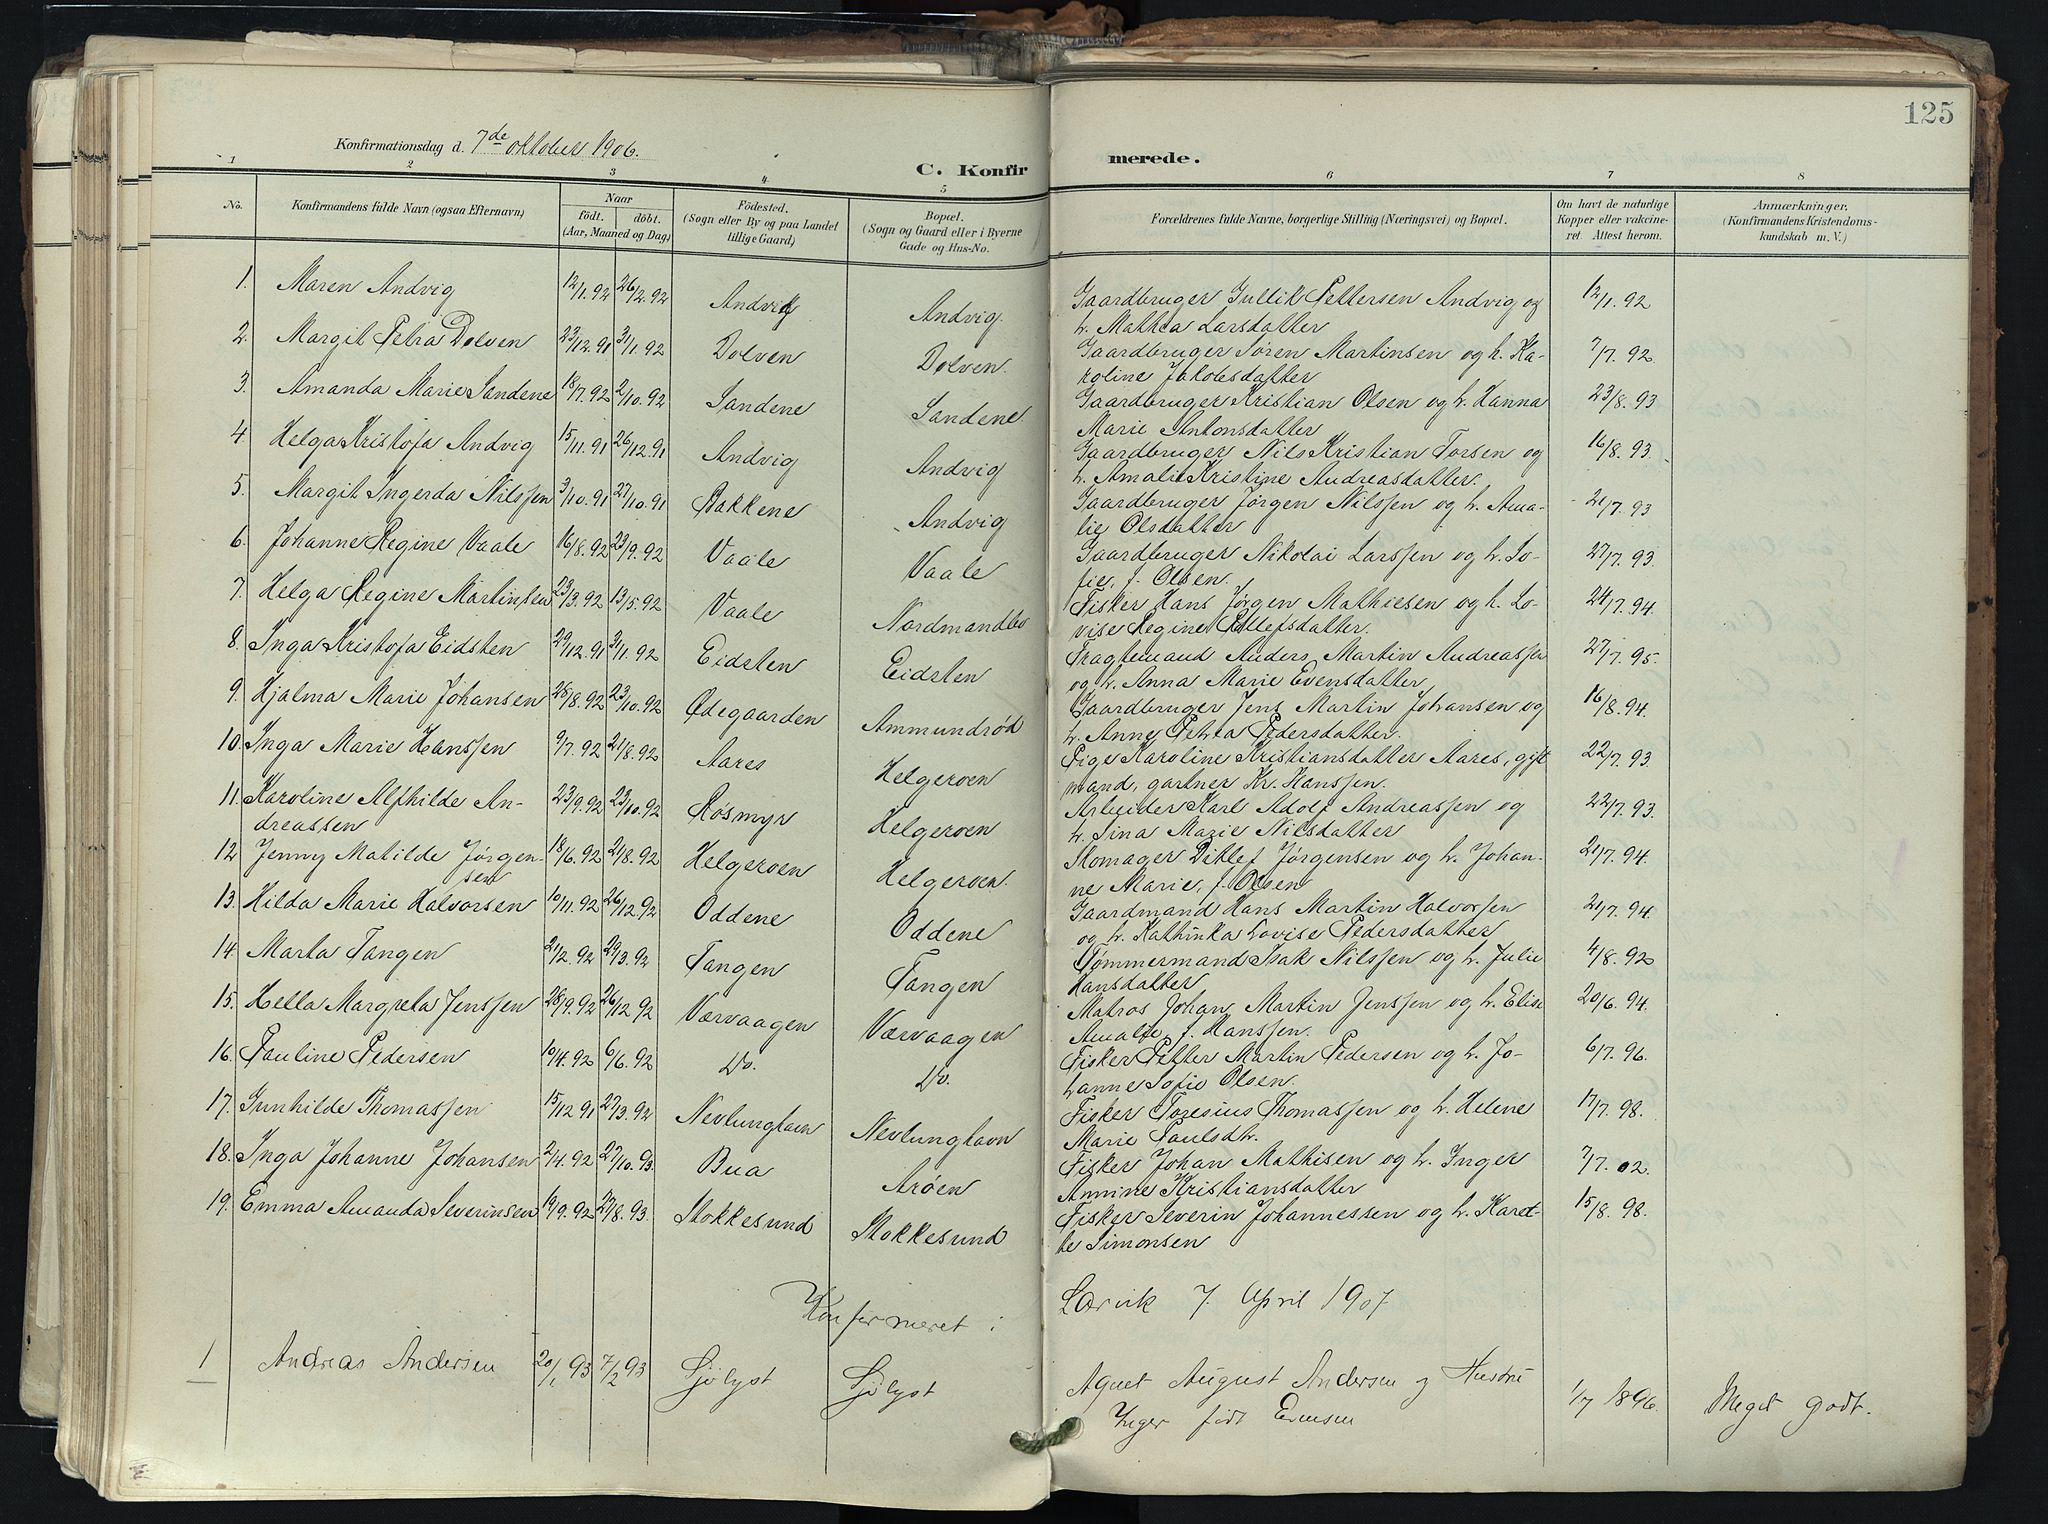 125
Konfirmationsdag d. 7de oktober 1906.
C. Konfirmerede.
1 2 3 4 5 6 7 8
No.
Konfirmandens fulde Navn (ogsaa Efternavn)
Naar
født. døbt.
(Aar, Maaned og Dag)
Fødested.
(Sogn eller By og paa Landet
tillige Gaard)
Bopæl.
(Sogn og Gaard eller i Byerne
Gade og Hus-No.
Forældrenes fulde Navne, borgerlige Stilling (Næringsvei) og Bopæl.
Om havt de naturlige
Kopper eller vakcine-
ret. Attest herom.
Anmærkninger.
(Konfirmandens Kristendoms-
kundskab m. V.)
1. Maren Andvig 12/1.92 26/12.92 Andvig Andvig. Gaardbruger Gullik Pettersen Andvig og 12/1.92
h. Mathea Larsdatter
2. Margit Petra Dolven 23/12.91 31/1.92 Dolven Dolven. Gaardbruger Søren Martinsen og h. Ka- 7/7.92
roline Jakobsdatter
3. Amanda Marie Sandene 18/7.92 2/10.92 Sandene Sandene. Gaardbruger Kristian Olsen og h. Hanna 23/8.93
Marie Antonsdatter
4. Helga Kristofa Andvig 15/11.91 26/12.91 Andvig Andvig Gaardbruger Nils Kristian Torsen og 16/8.93
h. Amalie Kristine Andreasdatter.
5. Margit Ingerda Nilssen 3/10.91 27/10.91 Bakkene Andvig Gaardbruger Jørgen Nilssen og h. Ama- 21/7.93
lie Olsdatter
6. Johanne Regine Vaale 16/8.92 23/9.92 Vaale Vaale Gaardbruger Nikolai Larssen og h. So- 27/7.93.
fie, f. Olsen.
7. Helga Regine Martinsen 23/3.92 13/5.92 Vaale Nordmandbo Fisker Hans Jørgen Mathiesen og h. Lo- 24/7.94.
vise Regine Rollefsdatter.
8. Inga Kristofa Eidsten 29/12.91 31/1.92 Eidsten Eidsten Fragtemand Anders Martin Andreassen 27/7.95.
og h. Anna Marie Evensdatter
9. Hjalma Marie Johansen 28/8.92 23/10.92 Ødegaarden Ammundrød Gaardbruger Jens Martin Johansen og 16/8.94.
h. Anne Petrea Pedersdatter.
10. Inga Marie Hanssen 9/7.92 21/8.92 Aares Helgeroen Pige Karoline Kristiansdatter Aares, gift 22/7.93.
mand, gartner Kr. Hanssen.
11. Karoline Alfhilde An- 23/9.92 23/10.92 Rosmyr Helgeroen Arbeider Karl Adolf Andreassen og 22/7.93.
dreassen h. Sina Marie Nilsdatter
12 Jenny Matilde Jørgen- 18/6.92 21/8.92 Helgeroen Helgeroen. Skomager Ditlef Jørgensen og h. Johan- 21/7.94.
sen ne Marie, f. Olsen
13. Hilda Marie Halvorsen 10/11.92 26/12.92 Oddene Oddene Gaardmand Hans Martin Halvorsen 21/7.94.
og h. Kathinka Lovise Pedersdatter
14. Marta Tangen 21/2.92 29/3.92 Tangen Tangen Tømmermand Isak Nilssen og h. Julie 4/8.92
Hansdatter
15. Hella Margreta Jenssen 28/9.92 26/12.92 Værvaagen Værvaagen Matros Johan Martin Jenssen og h. Elise 20/6.94.
Amalie, f. Hanssen.
16. Pauline Pedersen 10/4.92 6/6.92 Do. Do. Fisker Petter Martin Pedersen og h. Jo- 6/7.96.
hanne Sofie Olsen.
17. Gunhilde Thomassen 15/12.91 27/3.92 Nevlunghavn Nevlunghavn Fisker Toresius Thomassen og h. Helene 17/7.98.
Marie Paulsdtr.
18. Inga Johanne Johansen 2/4.92 27/10.93. Bua Arøen Fisker Johan Mathisen og h. Inger 7/7.02.
Annine Kristiansdatter
19. Emma Amanda Severinsen 19/9.92 27/8.93. Stokkesund Stokkesund Fisker Severin Johannessen og h. Karet- 15/8.98.
te Simonsen
Konfirmeret i Larvik 7. April 1907
1 Andreas Andersen 20/1 93 7/2 93 Sjølyst Sjølyst August Andersen og Hustru 1/7 1896. Meget godt.
Inger født